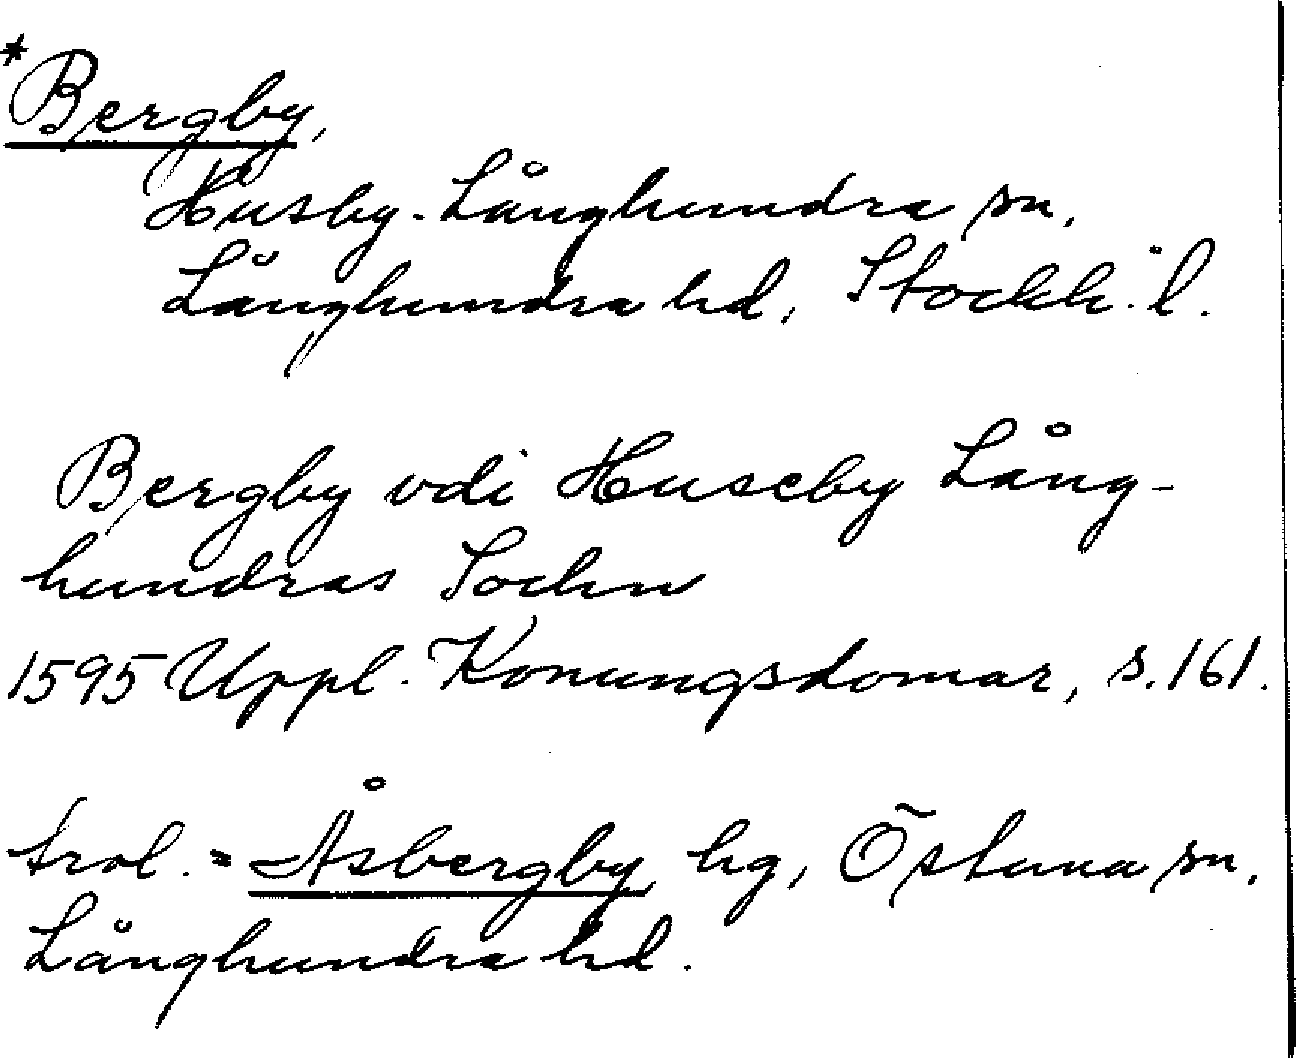 *Bergby,
Husby-Långhundra sn,
Långhundra hd, Stockh. l.
Bergby vdi Huseby Lång-
hundras Sochn
1595 Uppl. Konungsdomar, s. 161.
trol. = Åsbergby, hg, Östuna sn,
Långhundra hd.